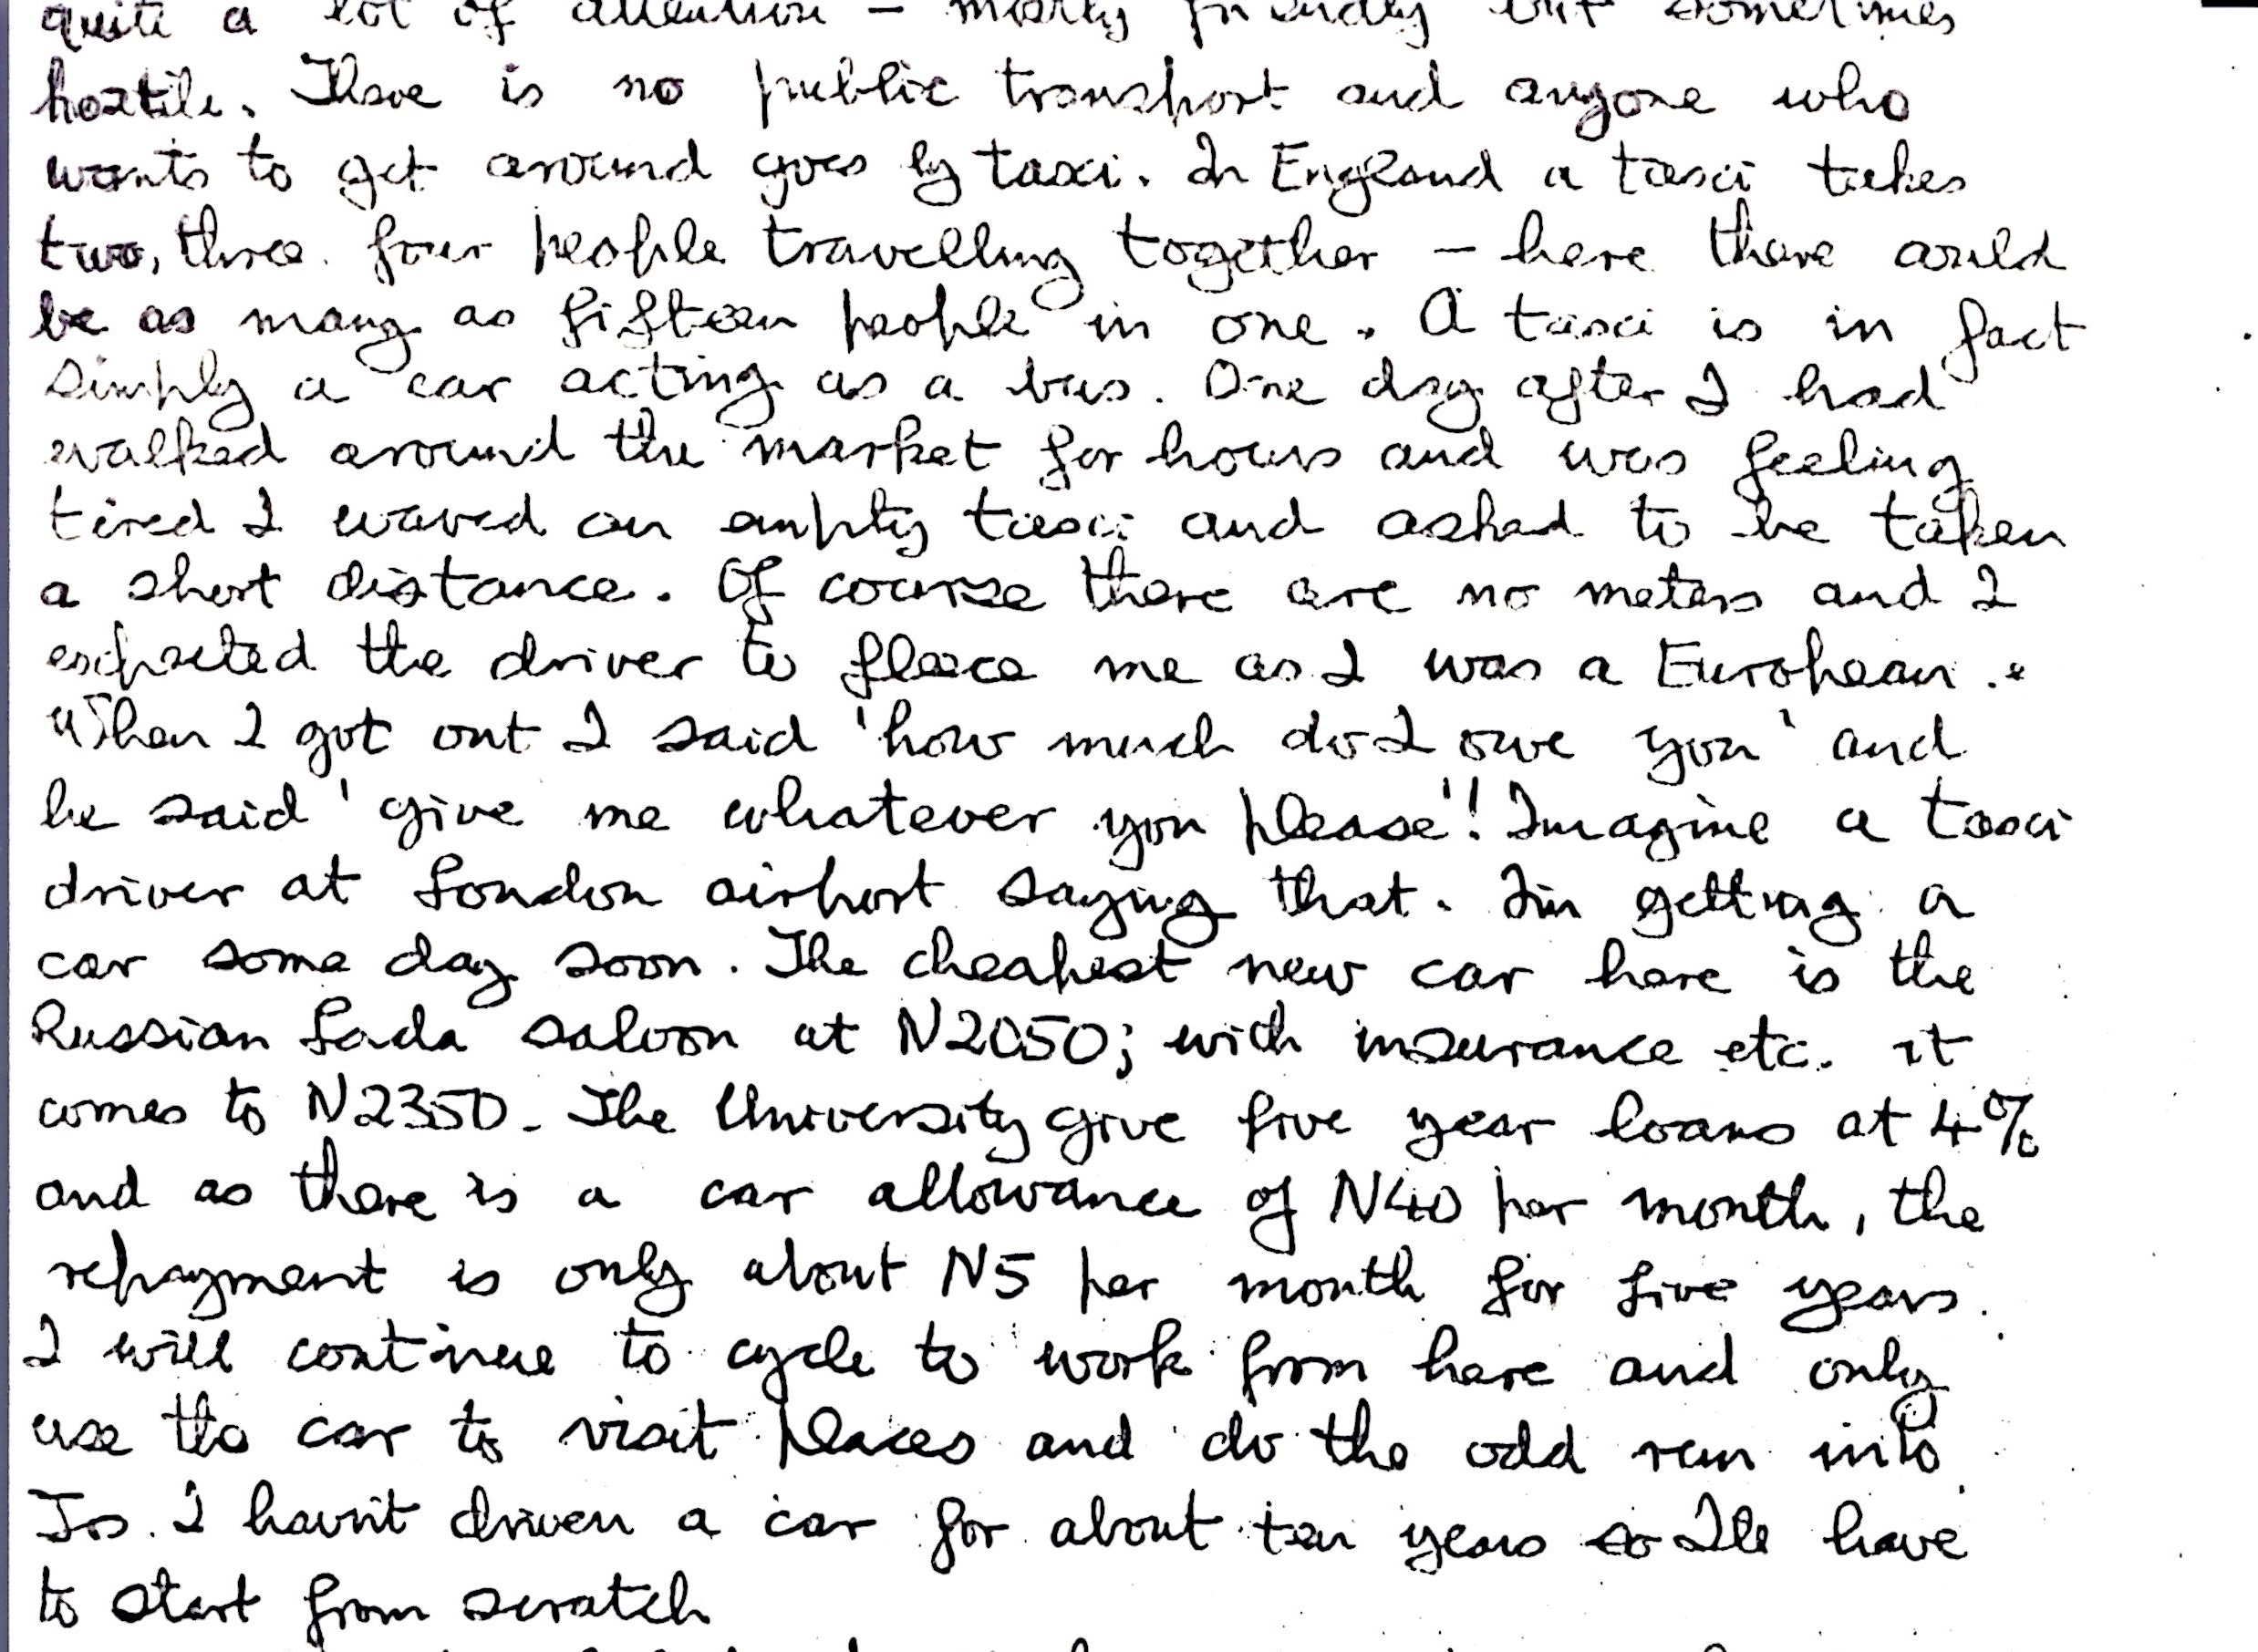 quite a lot of attention – mostly friendly but sometimes
hostile. There is no public transport and anyone who
wants to get around goes by taxi. In England a taxi takes
two, three four people travelling together – here there could
be as many as fifteen people in one. A taxi is in fact
simply a car acting as a bus. One day after I had
walked around the market for hours and was feeling
tired I waved an empty taxi and asked to be taken
a short distance. Of course there are no meters and I
expected the driver to fleece me as I was a European..
When I got out I said 'how much do I owe you' and
he said 'give me whatever you please'! Imagine a taxi
driver at London airport saying that. I'm getting a
car some day soon. The cheapest new car here is the
Russian Lada saloon at N2050; with insurance etc. it
comes to N2350. The University give five year loans at 4%
and as there is a car allowance of N40 per month, the
repayment is only about N5 per month for five years.
I will continue to cycle to work from here and only
use the car to visit places and do the odd run into
Jos. I havn't driven a car for about ten years so I'll have
to start from scratch